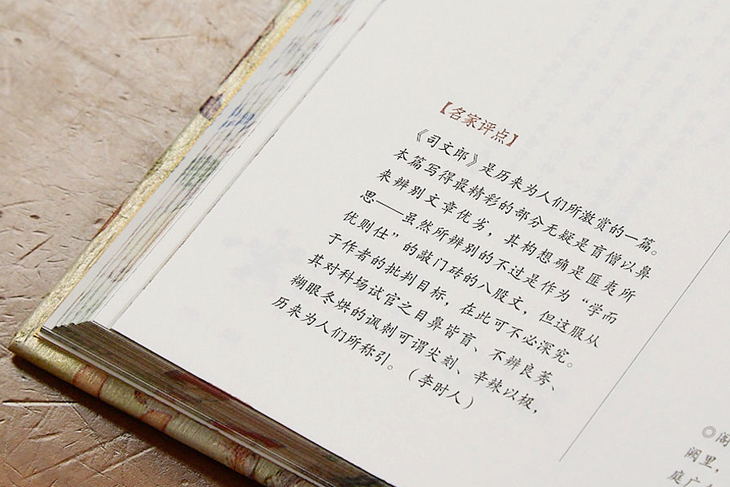 【名家评点】
《司文郎》是历来为人们所激赏的一篇。
本篇写得最精彩的部分无疑是盲僧以鼻
来辨别文章优劣，其构想确是匪夷所
思——虽然所辨别的不过是作为“学而
优则仕”的敲门砖的八股文，但这服从
于作者的批判目标，在此可不必深究。
其对科场试官之目鼻皆盲、不辨良莠、
糊眼冬烘的讽刺可谓尖刻、辛辣以极，
历来为人们所称引。（李时人）
◎阁
阙里，
庭广